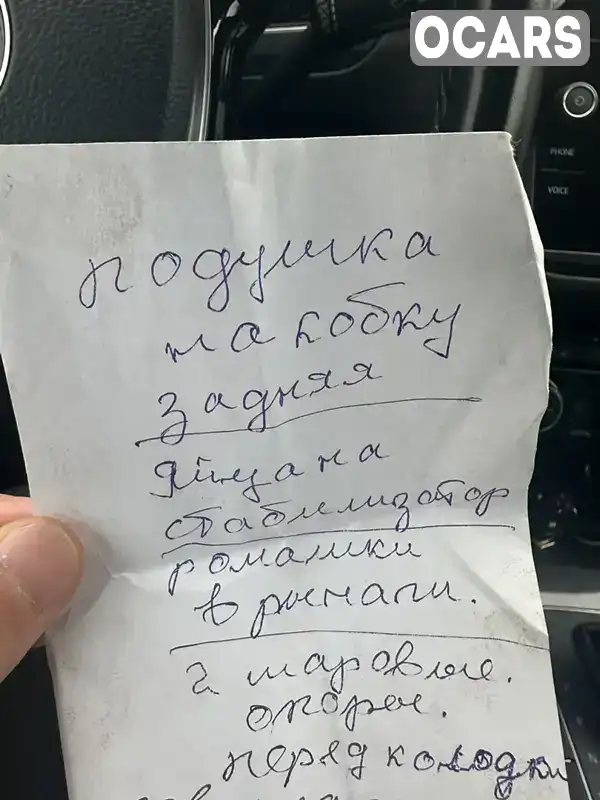 OCARS
PHONE
VOICE
подушка
на кобку
задняя
яйца на
стабилизатор
ромашки
в рычаги.
2 шаровые.
опоры.
перяд колодки